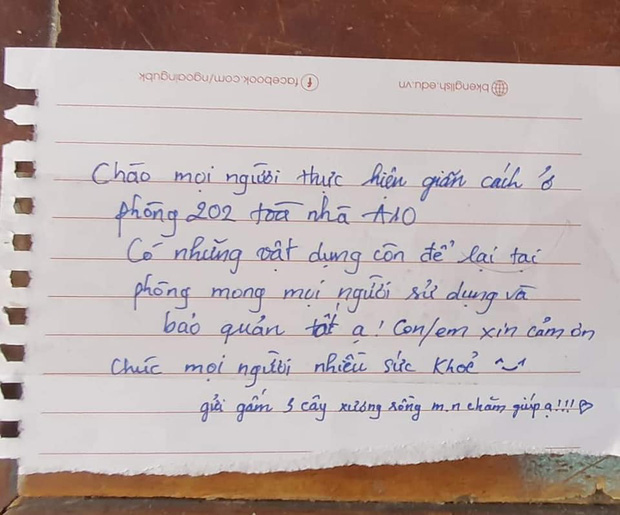 bkenglish.edu.vn facebook.com/ngoaingubk
Chào mọi người thực hiện giãn cách ở
phòng 202 toà nhà A10
Có những vật dụng còn để lại tại
phòng mong mọi người sử dụng và
bảo quản tốt ạ! Con/em xin cảm ơn
Chúc mọi người nhiều sức khoẻ
gửi gắm 3 cây xương rồng m.n chăm giúp ạ!!! ♡